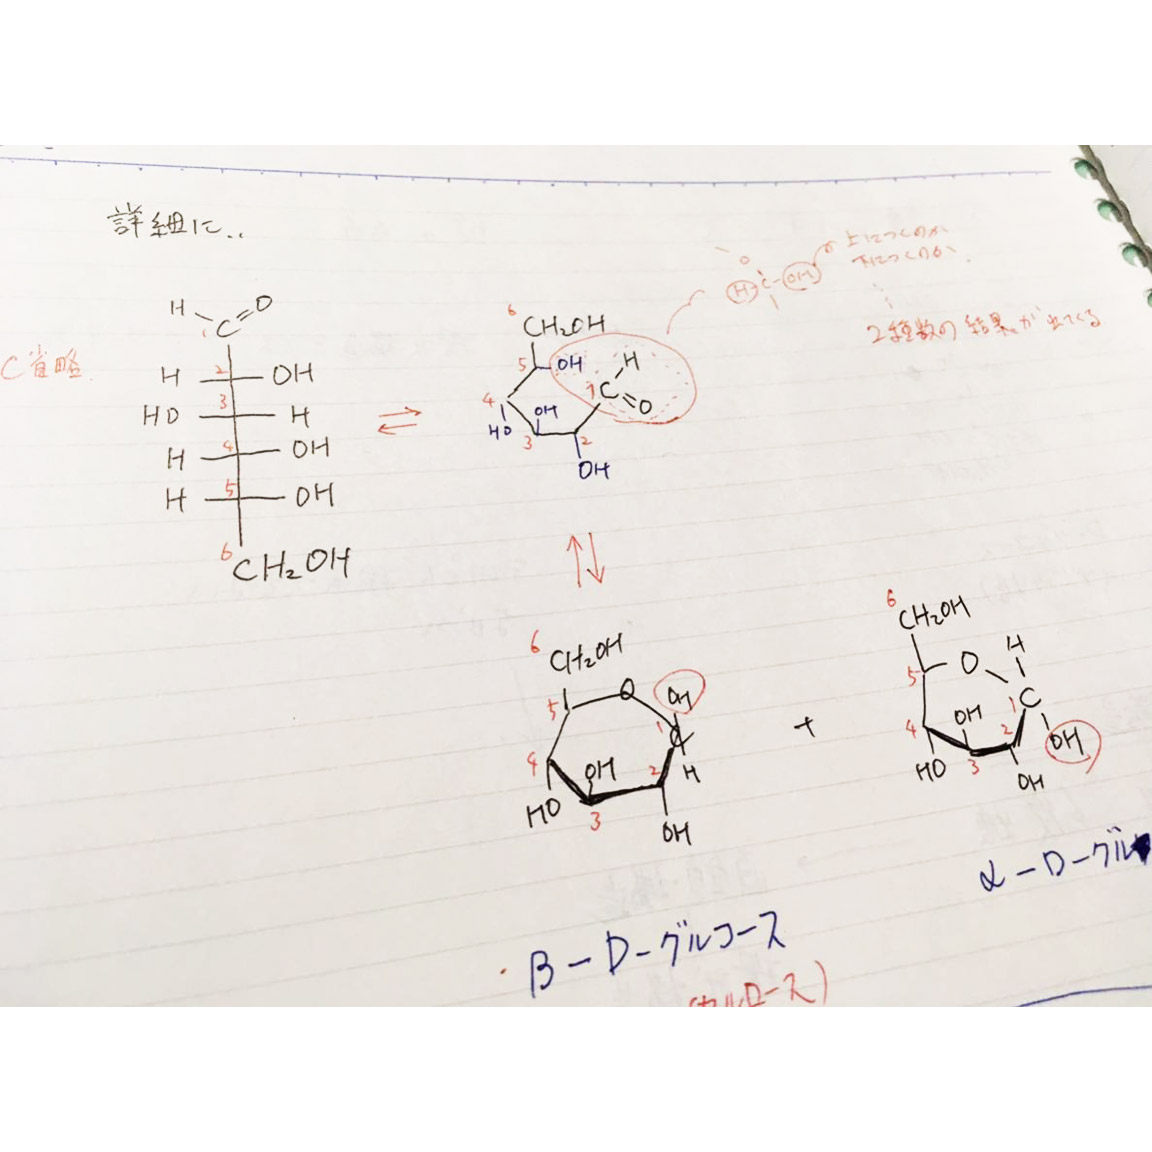 詳細に..
上につくのか
下につくのか、
H C OH
2種類の結果が出てくる
C省略
H C O
1
H 2 OH
HO 3 H
H 4 OH
H 5 OH
6 CH₂OH
6
CH₂OH
5 OH H
4 1 C O
HO OH
3 2
OH
6
CH₂OH
5 O OH
1 C
4 OH 2 H
HO
3 OH
+
6
CH₂OH
H
5 O
1 C
4 OH 2 OH
HO 3 OH
α-D-グル
β-D-グルコース
(セルロース)